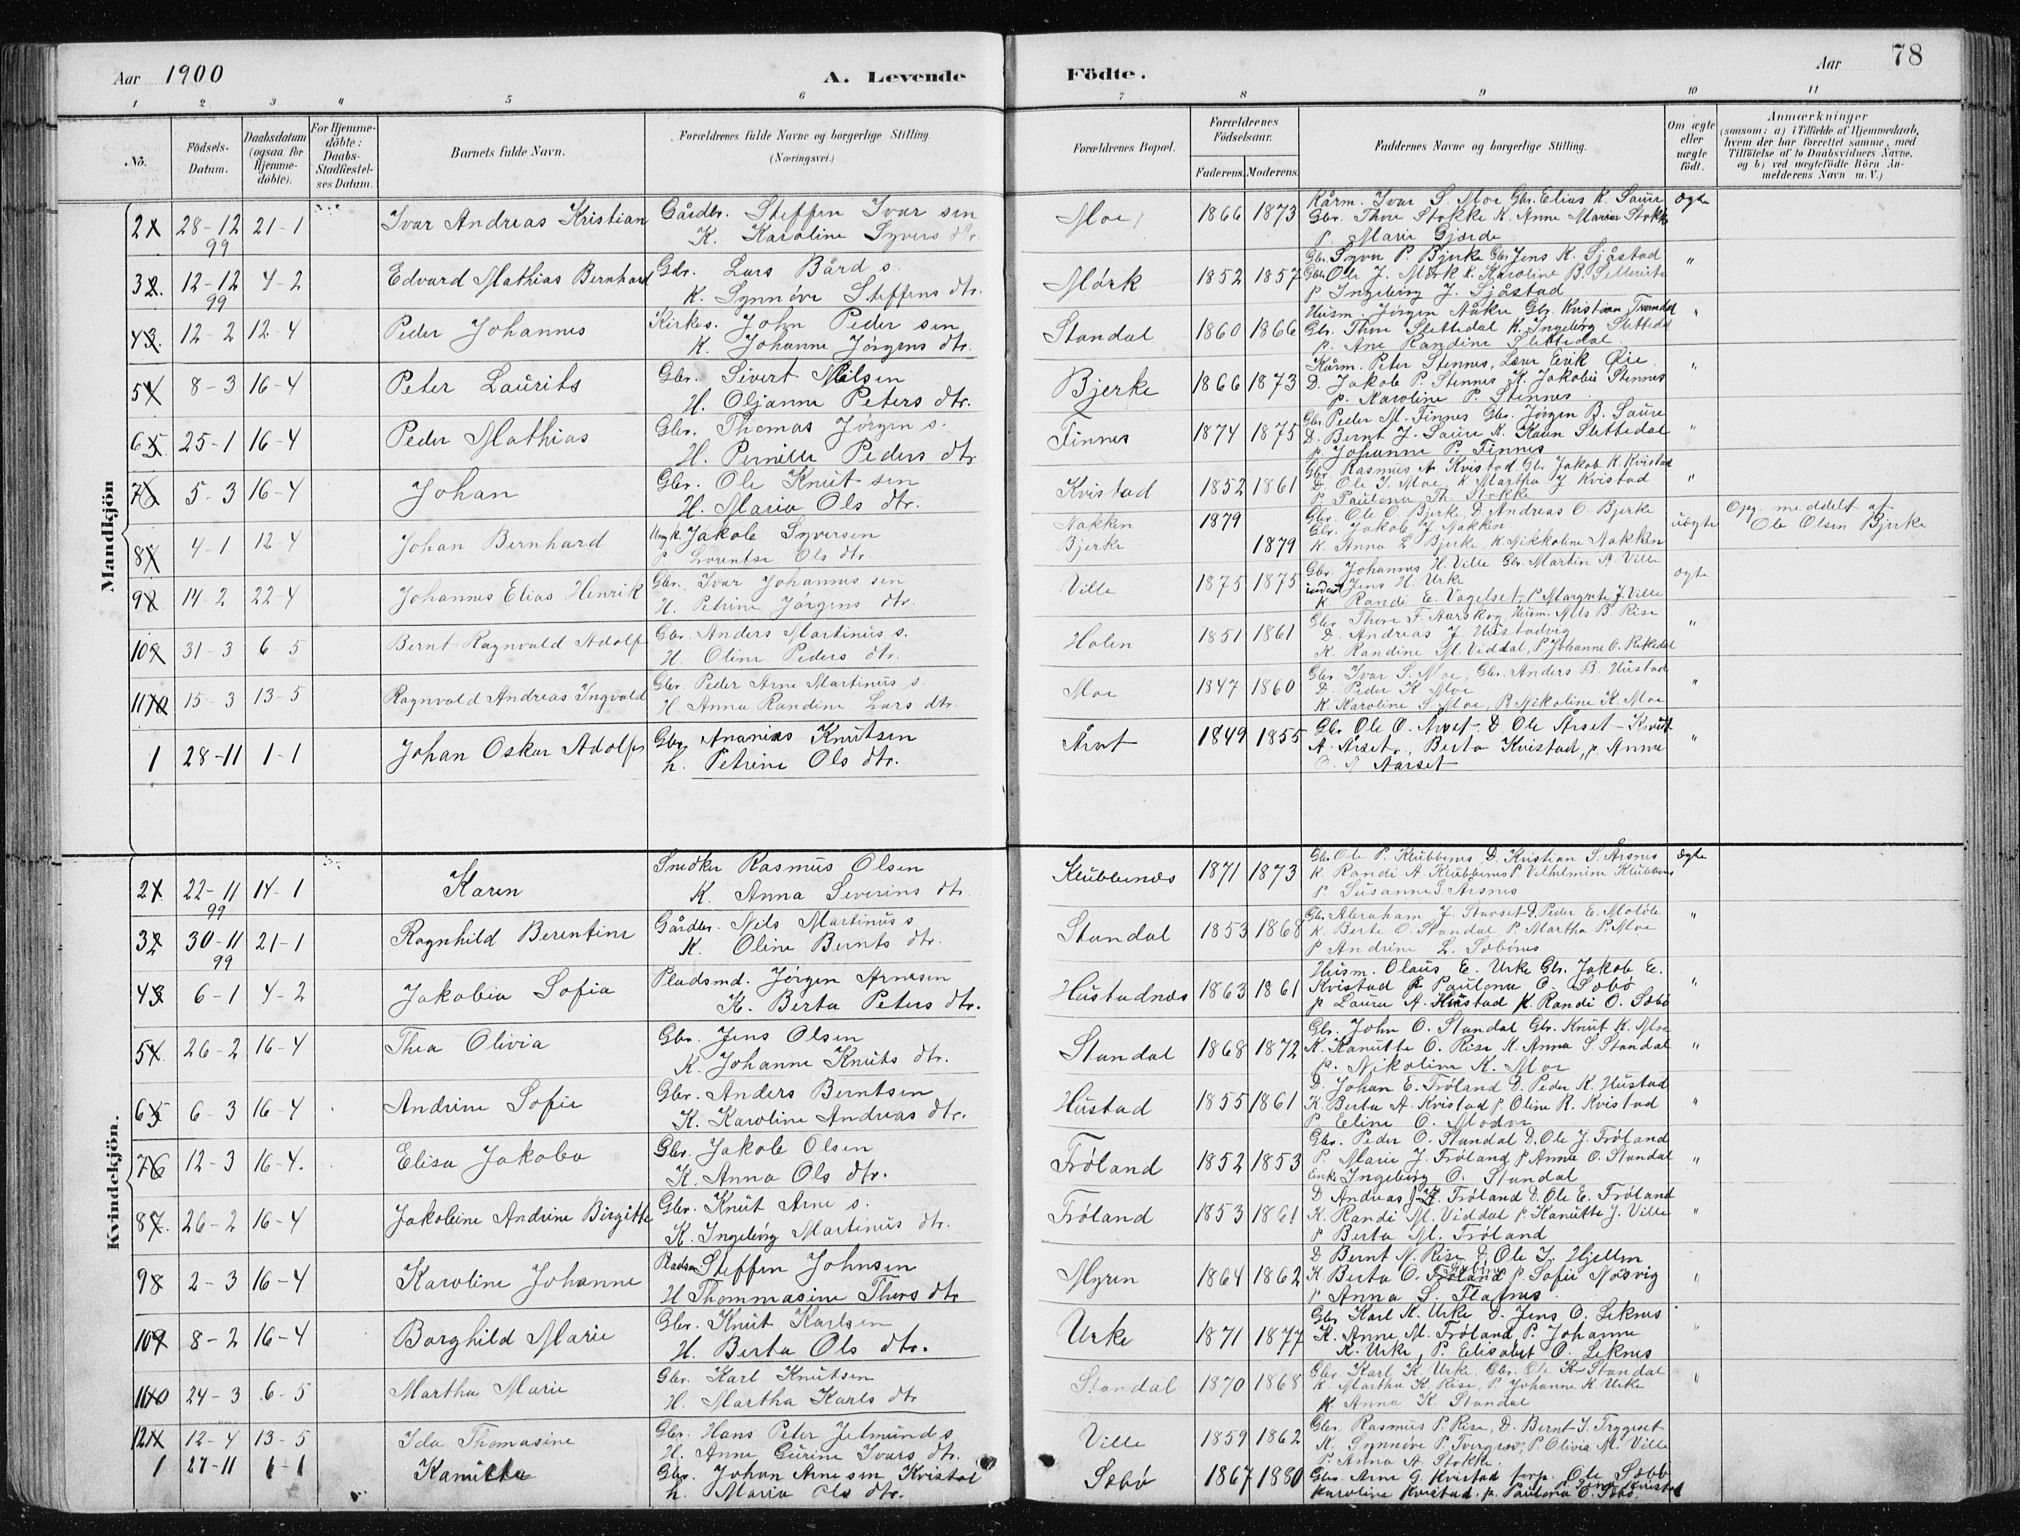 Aar 1900
A. Levende
Födte.
Aar
78
1 2 3 4 5 6 7 8 9 10 11
No.
Födsels-Datum.
Daabsdatum (ogsaa for Hjemme-döbte).
For Hjemme-döbte: Daabs-Stadfæstel-ses Datum.
Barnets fulde Navn.
Forældrenes fulde Navne og borgerlige Stilling. (Næringsvei.)
Forældrenes Bopæl.
Forældrenes Födselsaar.
Faderens. Moderens.
Faddernes Navne og borgerlige Stilling.
Om ægte eller uægte födt.
Anmærkninger
(saasom: a) i Tilfælde af Hjemmedaab, hvem der har forrettet samme, med Tilföielse af to Daabsvidners Navne, og b) ved uægtefödte Börn An-melderens Navn m. V.)
Mandkjön
2 28-12 99 21-1 Ivar Andreas Kristian Gårdbr. Steffen Ivar sen Moe 1866 1873 Kårm. Ivar S. Moe Gbr. Elias K. Saure ægte
K. Karoline Syvers dtr. Gbr. Thore Stokke K. Anne Marie Stokke
p. Marie Gjærde
3 12-12 99 4-2 Edvard Mathias Bernhard Gbr. Lars Bård s. Mørk 1852 1857 Gbr. Syver P. Bjerke Gbr Jens K. Sjåstad "
K. Synnøve Steffens dtr. Gbr Ole J. Mørk K. Karoline B.
p. Ingeborg J. Sjåstad
4 12-2 12-4 Peder Johannes Kirkes. John Peder sen Standal 1860 1866 Husm. Jörgen Nakre Gbr. Kristian "
K. Johanne Jörgens dtr. Gbr. Thore Slettedal K. Ingeborg Slettedal
p. Ane Randine Slettedal
5 8-3 16-4 Peter Laurits Gbr. Sivert Nilsen Bjerke 1866 1873 Kårm. Peter Stennes, Erik Øie "
H. Oljanne Peters dtr. D. Jakob P. Stennes K. Jakobie Stennes
p. Karoline P. Stennes
6 25-1 16-4 Peder Mathias Gbr. Thomas Jörgen s. Finnes 1874 1875 Gbr Peder M. Finnes Gbr. Jörgen B. Saure "
H. Pernille Peders dtr D. Bernt J. Saure K. Karen Slettedal
p Johanne P. Finnes
7 5-3 16-4 Johan Gbr. Ole Knut sen Kvistad 1852 1861 Gbr Rasmus A. Kvistad Gbr Jakob K. Kvistad "
H. Maria Ols dtr. D. Ole I. Moe K Martha J Kvistad
P. Paulena Th. Stokke
8 4-1 12-4 Johan Bernhard Ungk. Jakob Syversen Nakken 1879 Gbr. Ole O. Bjerke, D. Andreas O. Bjerke uægte Opg. meddelt af
P. Lorentse Ols dtr. Bjerke 1879 Gbr. Jakob J Nakken Ole Olsen Bjerke
K. Anna L. Bjerke, K. Nikkoline Nakken
9 14-2 22-4 Johannes Elias Henrik Gbr. Ivar Johannes sen Ville 1875 1875 Gbr. Johannes H. Ville Gbr. Martin A Ville ægte
H. Petrine Jörgens dtr. Jens H. Urke
K. Randi E. Vagelset, P Margrete J. Ville
10 31-3 6-5 Bernt Ragnvald Adolf Gbr. Anders Martinus s. Holen 1851 1861 Gbr Thore F Aarskog Husm. Nils B. Rise "
H. Oline Peders dtr. D. Andreas J Hustadvig
K. Randine M. Viddal, P. Johanne O. Rekkedal
11 15-3 13-5 Ragnvald Andreas Ingvald Gbr. Peder Arne Martinus s. Moe 1847 1860 Gbr Ivar S. Moe, Gbr. Anders B. Hustad "
H. Anna Randine Lars dtr. D. Peder K Moe
K. Karoline S. Moe, P. Nikoline K. Moe
1 28-11 1-1 Johan Oskar Adolf Gbr. Ananias Knutsen 1849 1855 Gbr. Ole O. Årset D. Ole Årset Knut "
h. Petrine Ols dtr. A. Årset., Berta Kvistad, p. Anne
Aarset
Kvindekjön.
2 22-11 99 14-1 Karen Snedker Rasmus Olsen Klubbenæs 1871 1873 Gbr. Ole P. Klubbenes D. Kristian S. Årsnes ægte
K. Anna Severins dtr. K. Randi A Klubbenes P Vilhelmine Klubbenes
p Susanne S. Årsnes
3 30-11 99 21-1 Ragnhild Berentine Gårdbr. Nils Martinus s Standal 1853 1868 Gbr Abraham J. D Peder E. "
K. Oline Bernts dtr. K. Berte O. Standal, P. Martha P. Moe
P Andrine L. Sæbønes
4 6-1 4-2 Jakobia Sofia Pladsmd. Jörgen Arnesen Hustadnæs 1863 1861 Husm. Olaus E. Urke Gbr. Jakob E. "
K. Berta Peters dtr. Kvistad p Paulena O. Sæbø
p Laura A. Hustad K. Randi O. Sæbø
5 26-2 16-4 Thea Olivia Gbr. Jens Olsen Standal 1868 1872 Gbr. John O. Standal Gbr. Knut K. Moe "
K. Johanne Knuts dtr. K. Kanutte O. Rise K. Anna S. Standal
p. Nikoline K. Moe
6 6-3 16-4 Andrine Sofie Gbr. Anders Berntsen Hustad 1855 1861 D. Johan E. Frøland D. Peder K. Hustad "
K. Karoline Andreas dtr. K Berta A. Kvistad p. Oline R. Kvistad
P Eline O.
7 12-3 16-4. Elisa Jakoba Gbr. Jakob Olsen Frøland 1852 1853 Gbr. Peder O. Standal D. Ole J. Frøland "
K. Anna Ols dtr. P. Marie J. Frøland p Anne O. Standal
Enke Ingeborg O. Standal
8 26-2 16-4 Jakobine Andrine Birgitte Gbr. Knut Arne s. Frøland 1853 1861 D Andreas Frøland D. Ole E. Frøland "
K. Ingeborg Martinus dtr. K. Randi M. Viddal p. Kanutte J. Ville
p Berta M. Frøland
9 2-3 16-4 Karoline Johanne Steffen Johnsen Myren 1864 1862 D Bernt N. Rise D. Ole I. Hjellen "
H Thommasine Thors dtr K Berta O. p Sofie Nøsvig
p Anna S. Flatnes
10 8-2 16-4 Borghild Marie Gbr. Knut Karlsen Urke 1871 1877 Gbr Karl K. Urke D. Jens O. Leknes "
H. Berta Ols dtr. K. Anne M. Frøland P. Johanne
K. Urke, P. Elisabet O. Leknes
11 24-3 6-5 Martha Marie Gbr. Karl Knutsen Standal 1870 1868 Gbr. Karl K. Urke Gbr. Ole K Standal "
H. Martha Karls dtr K. Martha K. Rise, P. Johanne K. Urke
K Anna K. Standal
12 12-4 13-5 Ida Thomasine Gbr. Hans Peter Jetmund s. Ville 1859 1862 Gbr. Rasmus P. Rise, D. Bernt I. Tryggeset
H. Anne Gurine Ivars dtr. K. Synnöve P. P. Olivia M. Ville
P. Anna A. Stokke
1 27-11 1-1 Kanutte Gbr. Johan Arne sen Kvistad Sæbø 1867 1880 Gbr. Arne G. Kvistad forp. Ole Sæbø
h. Maria Ols dtr. Karoline Kvistad. p. Paulena O. Sæbø,